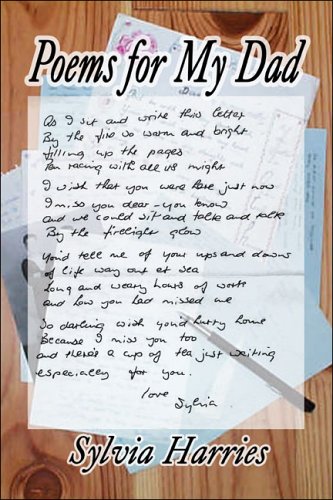 Poems for My Dad
As I sit and write this letter
By the fire so warm and bright
filling up the pages
Pen racing with all its might
I wish that you were here just now
I miss you dear - you know
and we could sit and talk and talk
By the firelight glow
You'd tell me of your ups and downs
of life way out at sea
Long and weary hours of work
and how you had missed me
So darling wish you'd hurry home
Because I miss you too
and there's a cup of tea just waiting
especially for you.
love
Sylvia.
Sylvia Harries